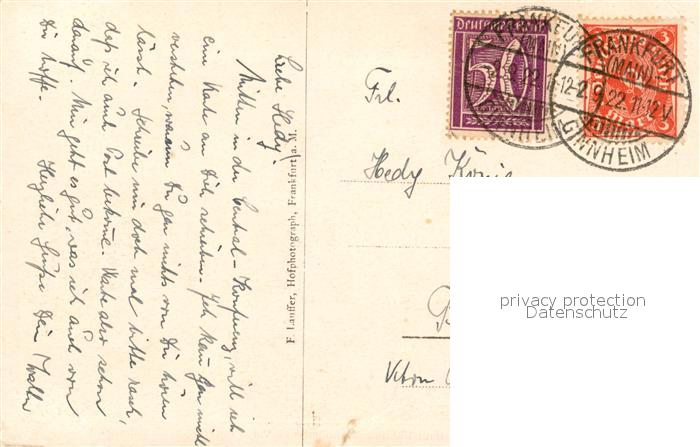 Liebe Hedy!
Mitten in der Central-Konferenz will ich
eine Karte an Dich schreiben. Ich kann gar nicht
verstehen, warum Du gar nichts von Dir hören
lässt. Schreibe mir doch mal bitte rasch,
daß ich auch Post bekomme. Warte aber schon
darauf. Mir geht es gut, was ich auch von
Dir hoffe. Herzliche Grüße Dein Walter
F. Lauffer, Hofphotograph, Frankfurt a. M.
Deutsches
50
FRANKFURT
(MAIN)
GINNHEIM
FRANKFURT
(MAIN)
12-2.9.22.11-12V
GINNHEIM
3
3
Frl.
Hedy König
privacy protection
Datenschutz